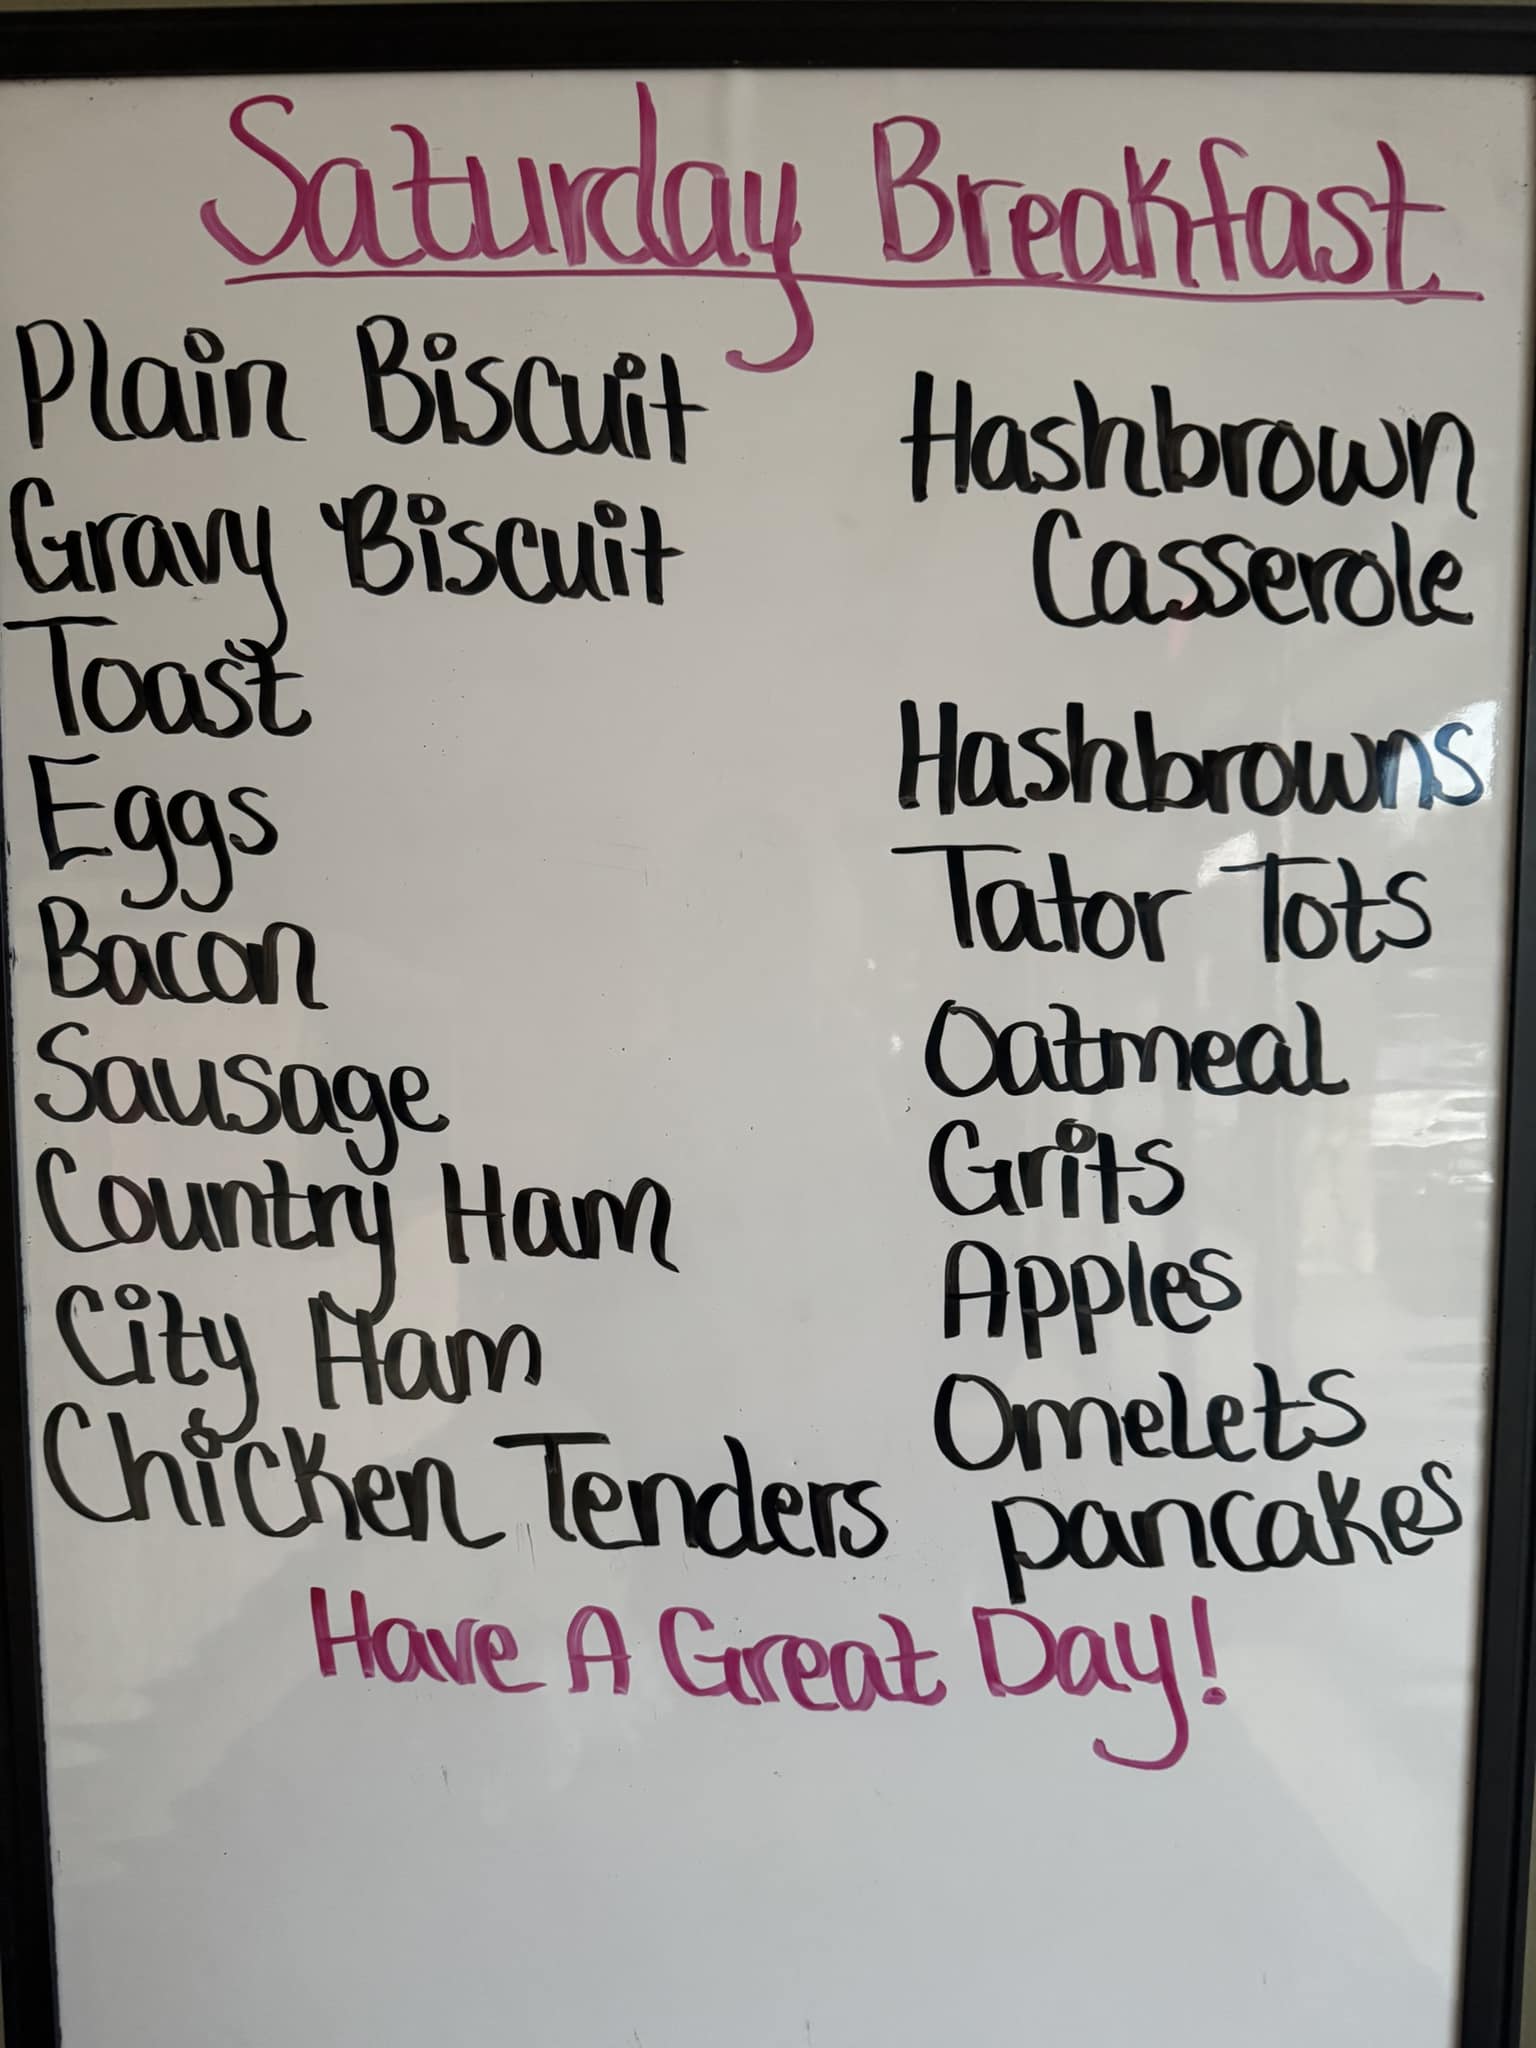 Saturday Breakfast
Plain Biscuit
Gravy Biscuit
Toast
Eggs
Bacon
Sausage
Country Ham
City Ham
Chicken Tenders
Hashbrown
Casserole
Hashbrowns
Tator Tots
Oatmeal
Grits
Apples
Omelets
pancakes
Have A Great Day!